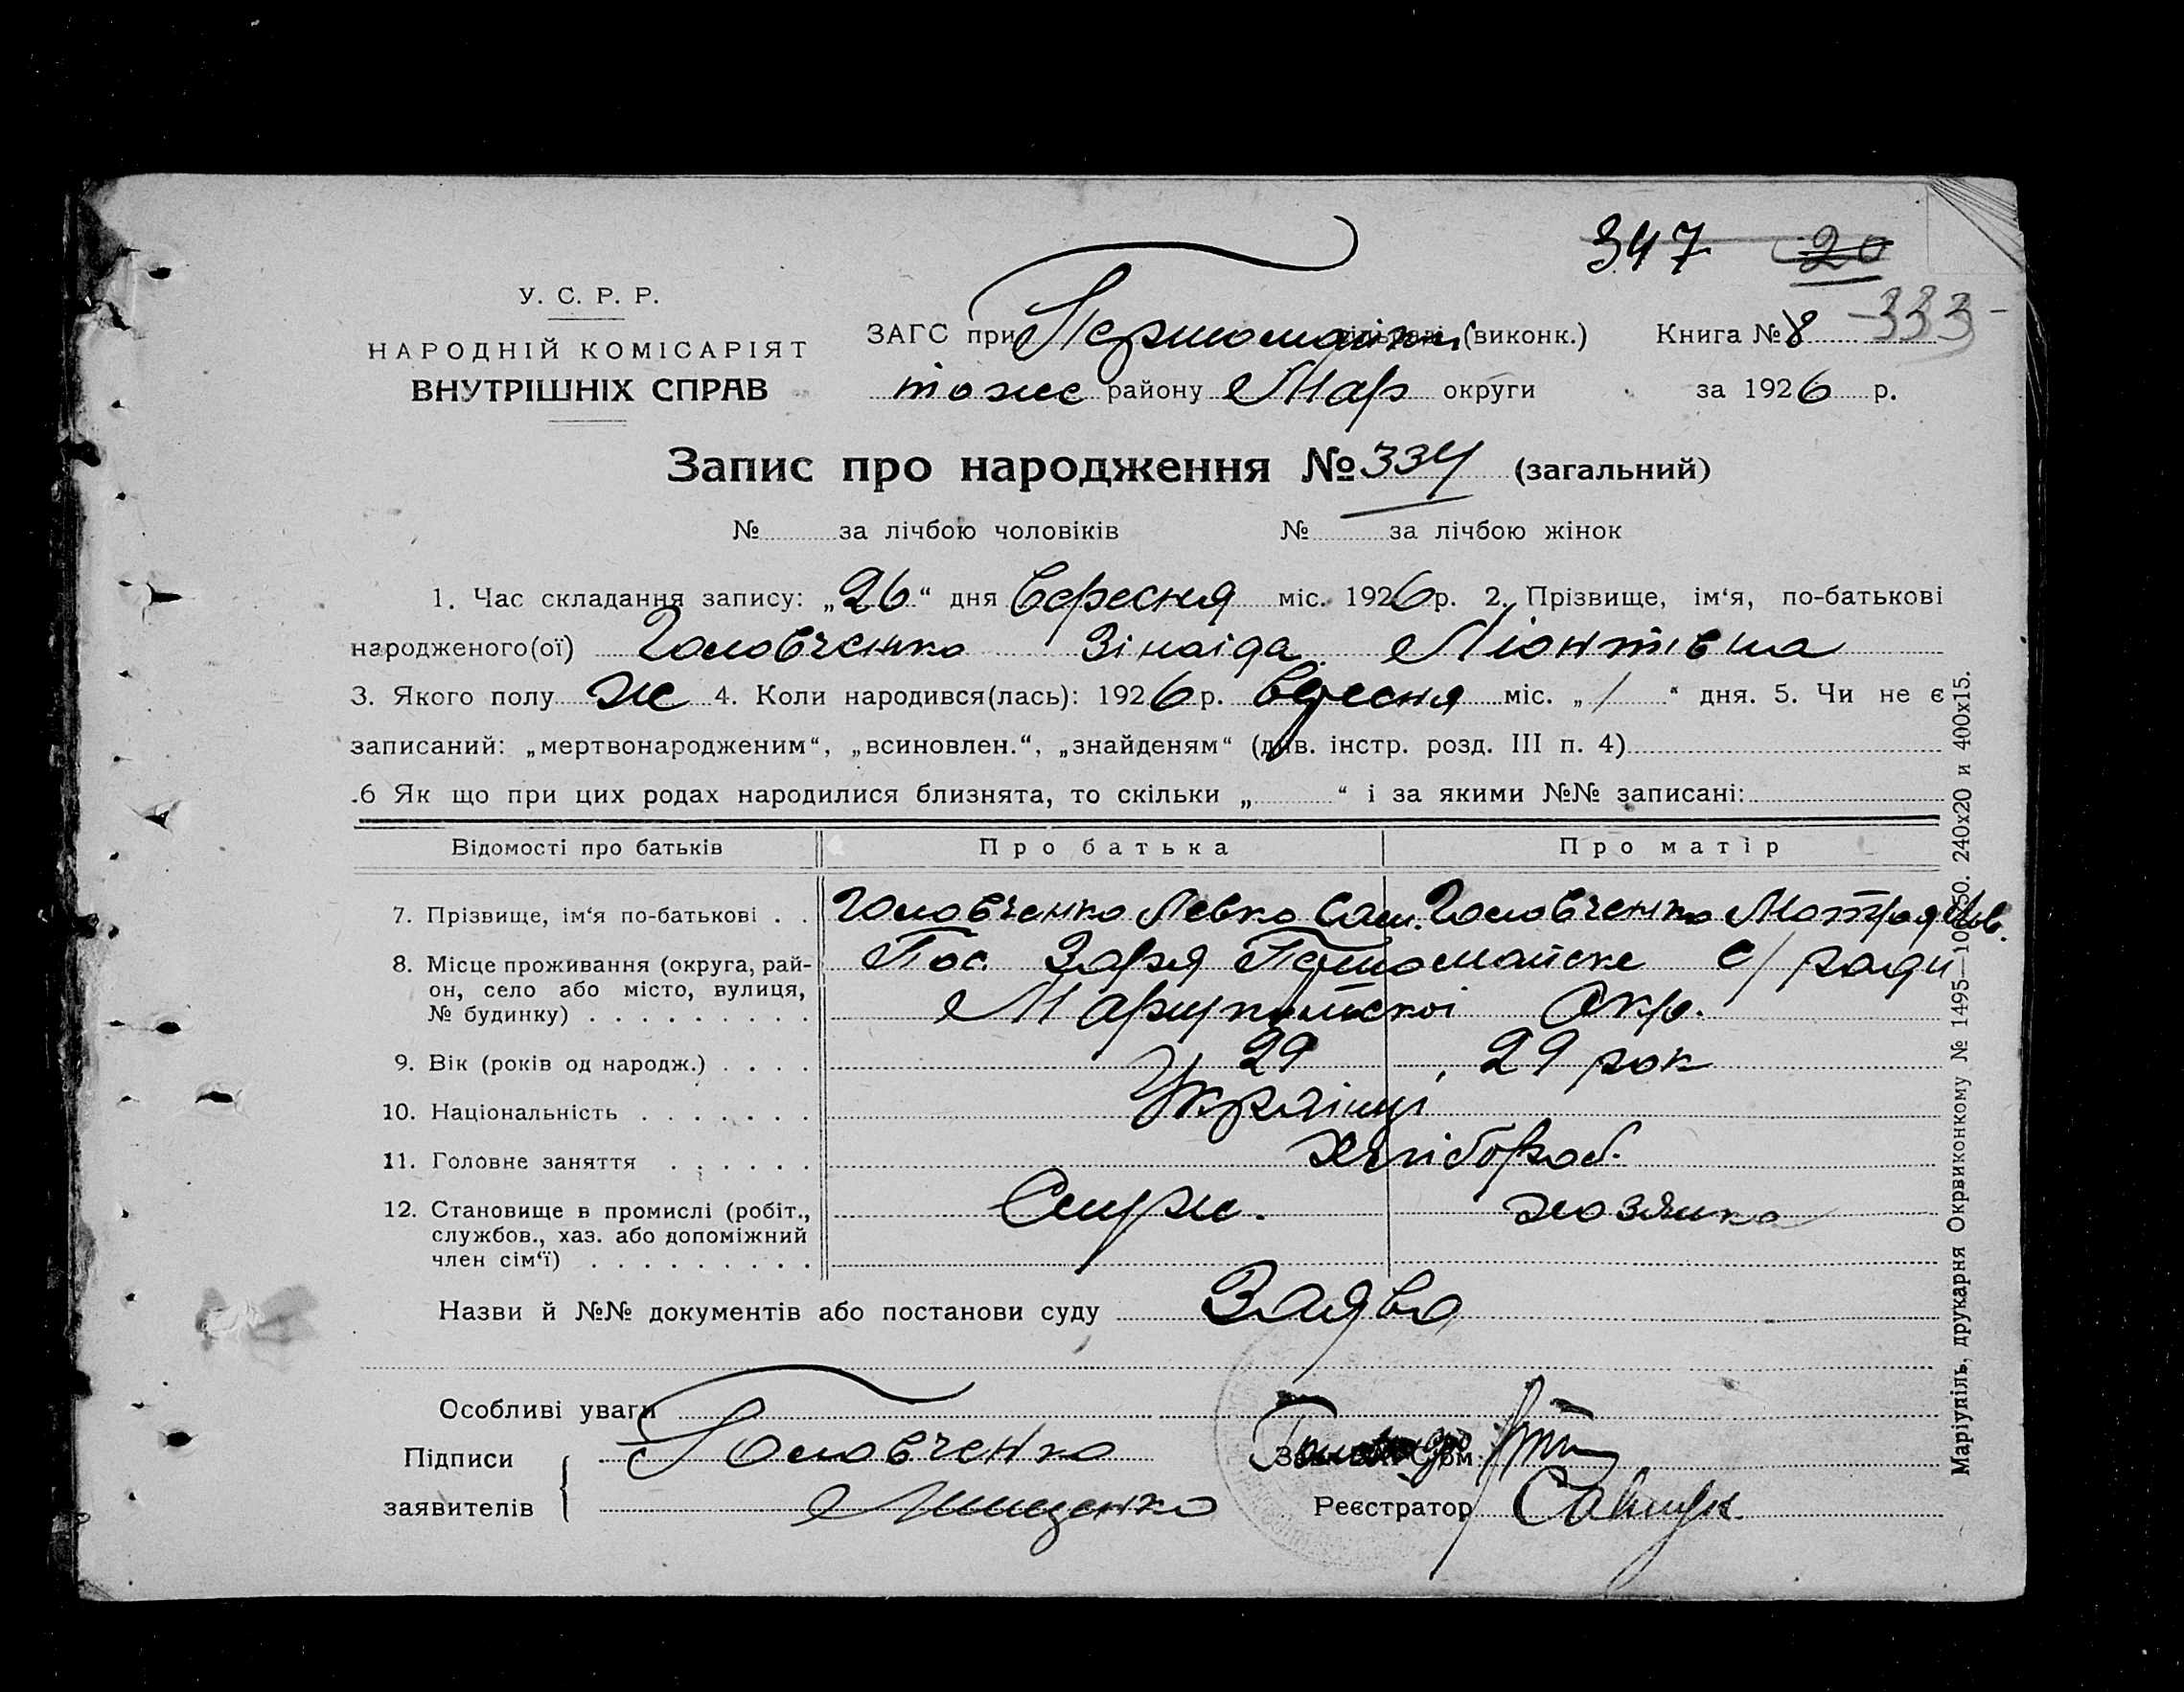 347 20
У. С. Р. Р.
333
НАРОДНІЙ КОМІСАРІЯТ
ВНУТРІШНІХ СПРАВ
ЗАГС при (виконк.) Книга № 8
тоже району Мар округи за 1926 р.
Запис про народження № 334 (загальний)
№ за лічбою чоловіків № за лічбою жінок
1. Час складання запису: „26“ дня Вересня міс. 1926 р. 2. Прізвище, ім‘я, по-батькові
народженого(ої) Головченко Зінаіда Ліонтівна
3. Якого полу ж 4. Коли народився(лась): 1926 р. міс. „1“ дня. 5. Чи не є
записаний: „мертвонародженим“, „всиновлен.“, „знайденям“ (див. інстр. розд. III п. 4)
.6 Як що при цих родах народилися близнята, то скільки „ “ і за якими №№ записані:
Відомості про батьків Про батька Про матір
7. Прізвище, ім‘я по-батькові . . Головченко Левко Сам. Головченко Мотря
8. Місце проживання (округа, рай-
он, село або місто, вулиця,
№ будинку) . . . . . . . . .
Пос. Заря с/ ради
Окр.
9. Вік (років од народж.) . . . . 29 29 рок
10. Національність . . . . . . . Украінці
11. Головне заняття . . . . . . Хлібороб.
12. Становище в промислі (робіт.,
службов., хаз. або допоміжний
член сім‘ї) . . . . . . . . .
хозяика
Назви й №№ документів або постанови суду Заява
Особливі уваги
Підписи
заявителів
Головченко
Реєстратор
Маріупіль, друкарня Окрвиконкому № 1495—10 240x20 и 400x15.